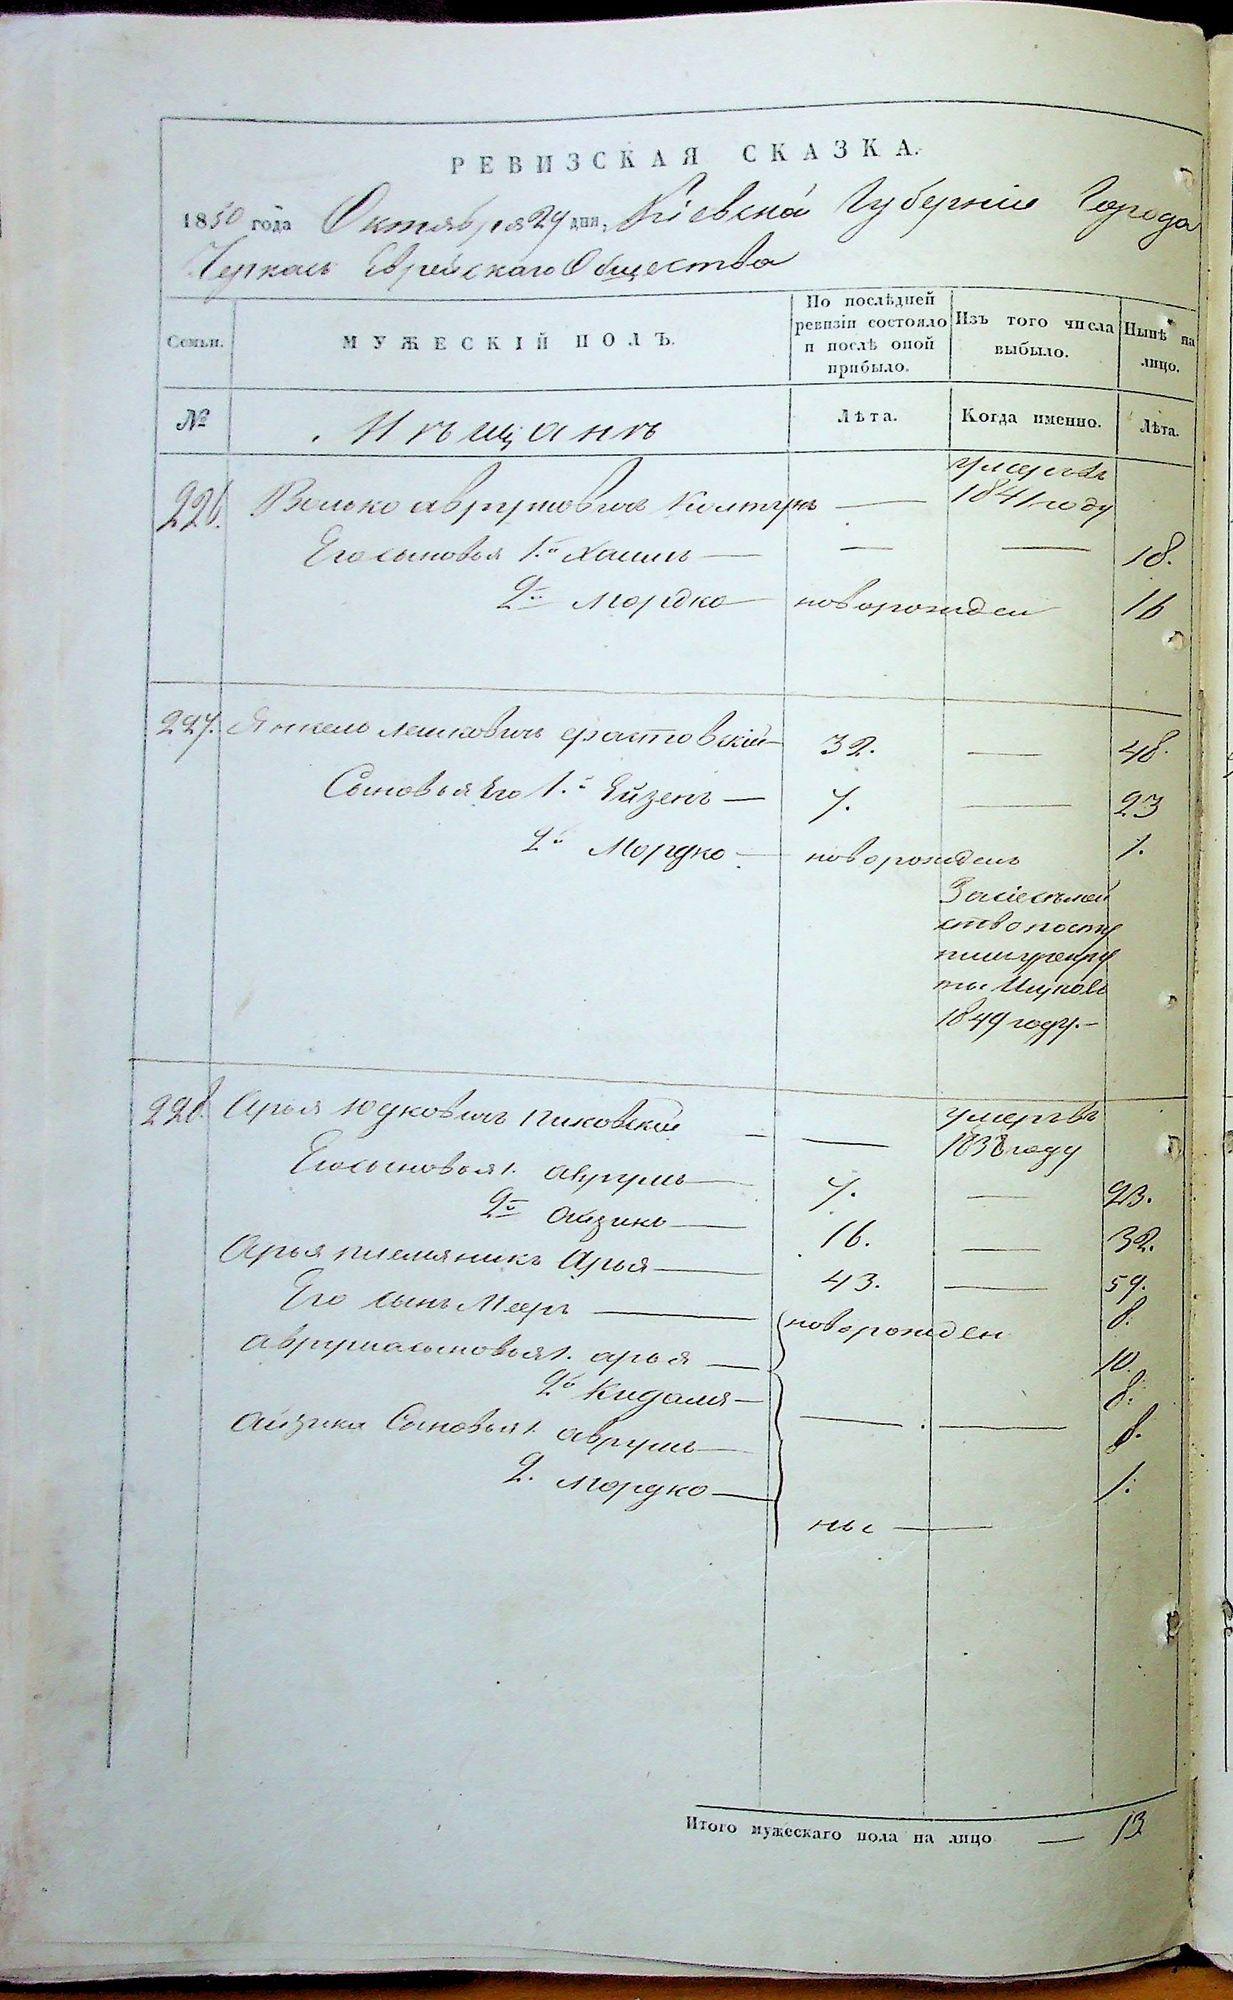 РЕВИЗСКАЯ СКАЗКА.
1850 года Октября 29 дня, Кіевской Губерніи Города
Черкасъ Еврейскаго Общества
Семьи.
МУЖЕСКІЙ ПОЛЪ.
По послѣдней ревизіи состояло и послѣ оной прибыло.
Изъ того числа выбыло.
Нынѣ на лицо.
№
Мѣщанѣ
Лѣта.
Когда именно.
Лѣта.
226. Волько Аврумовичъ Колтунъ — умеръ въ 1841 году
Его сыновья 1.й Хаимъ — — — 18.
2й Мордко — новорожден 16
227. Янкель Лейковичъ Фастовскій — 32. — 48.
Сыновья его 1.й Ейзенъ — 7. — 23
2й Мордко — новорожденъ 1.
За сіе семей
ство посту
1849 году.—
228. Арья Юдковичъ Пиковскій — — умеръ въ 1838 году
Его сыновья 1. Аврумъ — 7. — 23.
2й Айзикъ — 16. — 32.
Арья племяникъ Арья — 43. — 59.
Его сынъ Мееръ — новорожден 8.
Аврума сыновья 1. Арья — 10.
2й — 8.
Айзика Сыновья 1. Аврумъ — — — 8.
2. Мордко — 1.
ны —
Итого мужескаго пола на лицо — 13